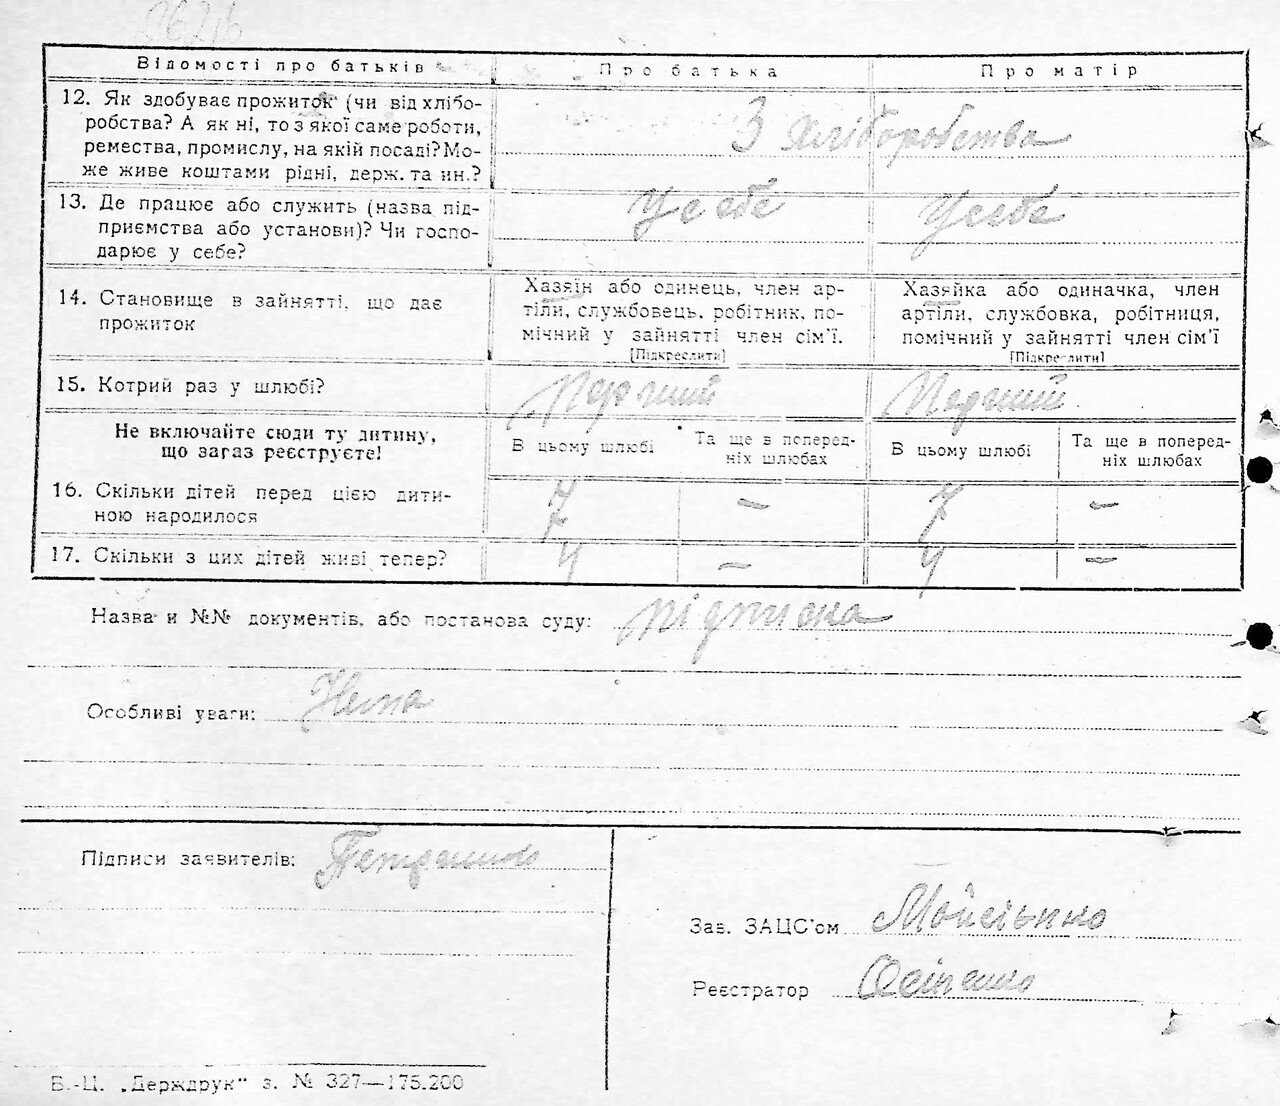 2626
Відомості про батьків Про батька Про матір
12. Як здобуває прожиток (чи від хлібо-
робства? А як ні, то з якої саме роботи,
ремества, промислу, на якій посаді? Мо-
же живе коштами рідні, держ. та ин.?
З хліборобства
13. Де працює або служить (назва під-
приємства або установи)? Чи госпо-
дарює у себе?
У себе У себе
14. Становище в зайнятті, що дає
прожиток
Хазяїн або одинець, член ар-
тіли, службовець, робітник, по-
мічний у зайнятті член сім'ї.
[Підкреслити]
Хазяйка або одиначка, член
артіли, службовка, робітниця,
помічний у зайнятті член сім'ї
[Підкреслити]
15. Котрий раз у шлюбі? Перший Перший
Не включайте сюди ту дитину,
що зараз реєструєте!
В цьому шлюбі Та ще в поперед-
ніх шлюбах
В цьому шлюбі Та ще в поперед-
ніх шлюбах
16. Скільки дітей перед цією дити-
ною народилося
7 — 7 —
17. Скільки з цих дітей живі тепер? 4 — 4 —
Назва и №№ документів, або постанова суду: підписка
Особливі уваги: Нема
Підписи заявителів: Петренко
Зав. ЗАЦС'ом Мойсієнко
Реєстратор Осіпенко
Б.-Ц. „Держдрук" з. № 327—175.200